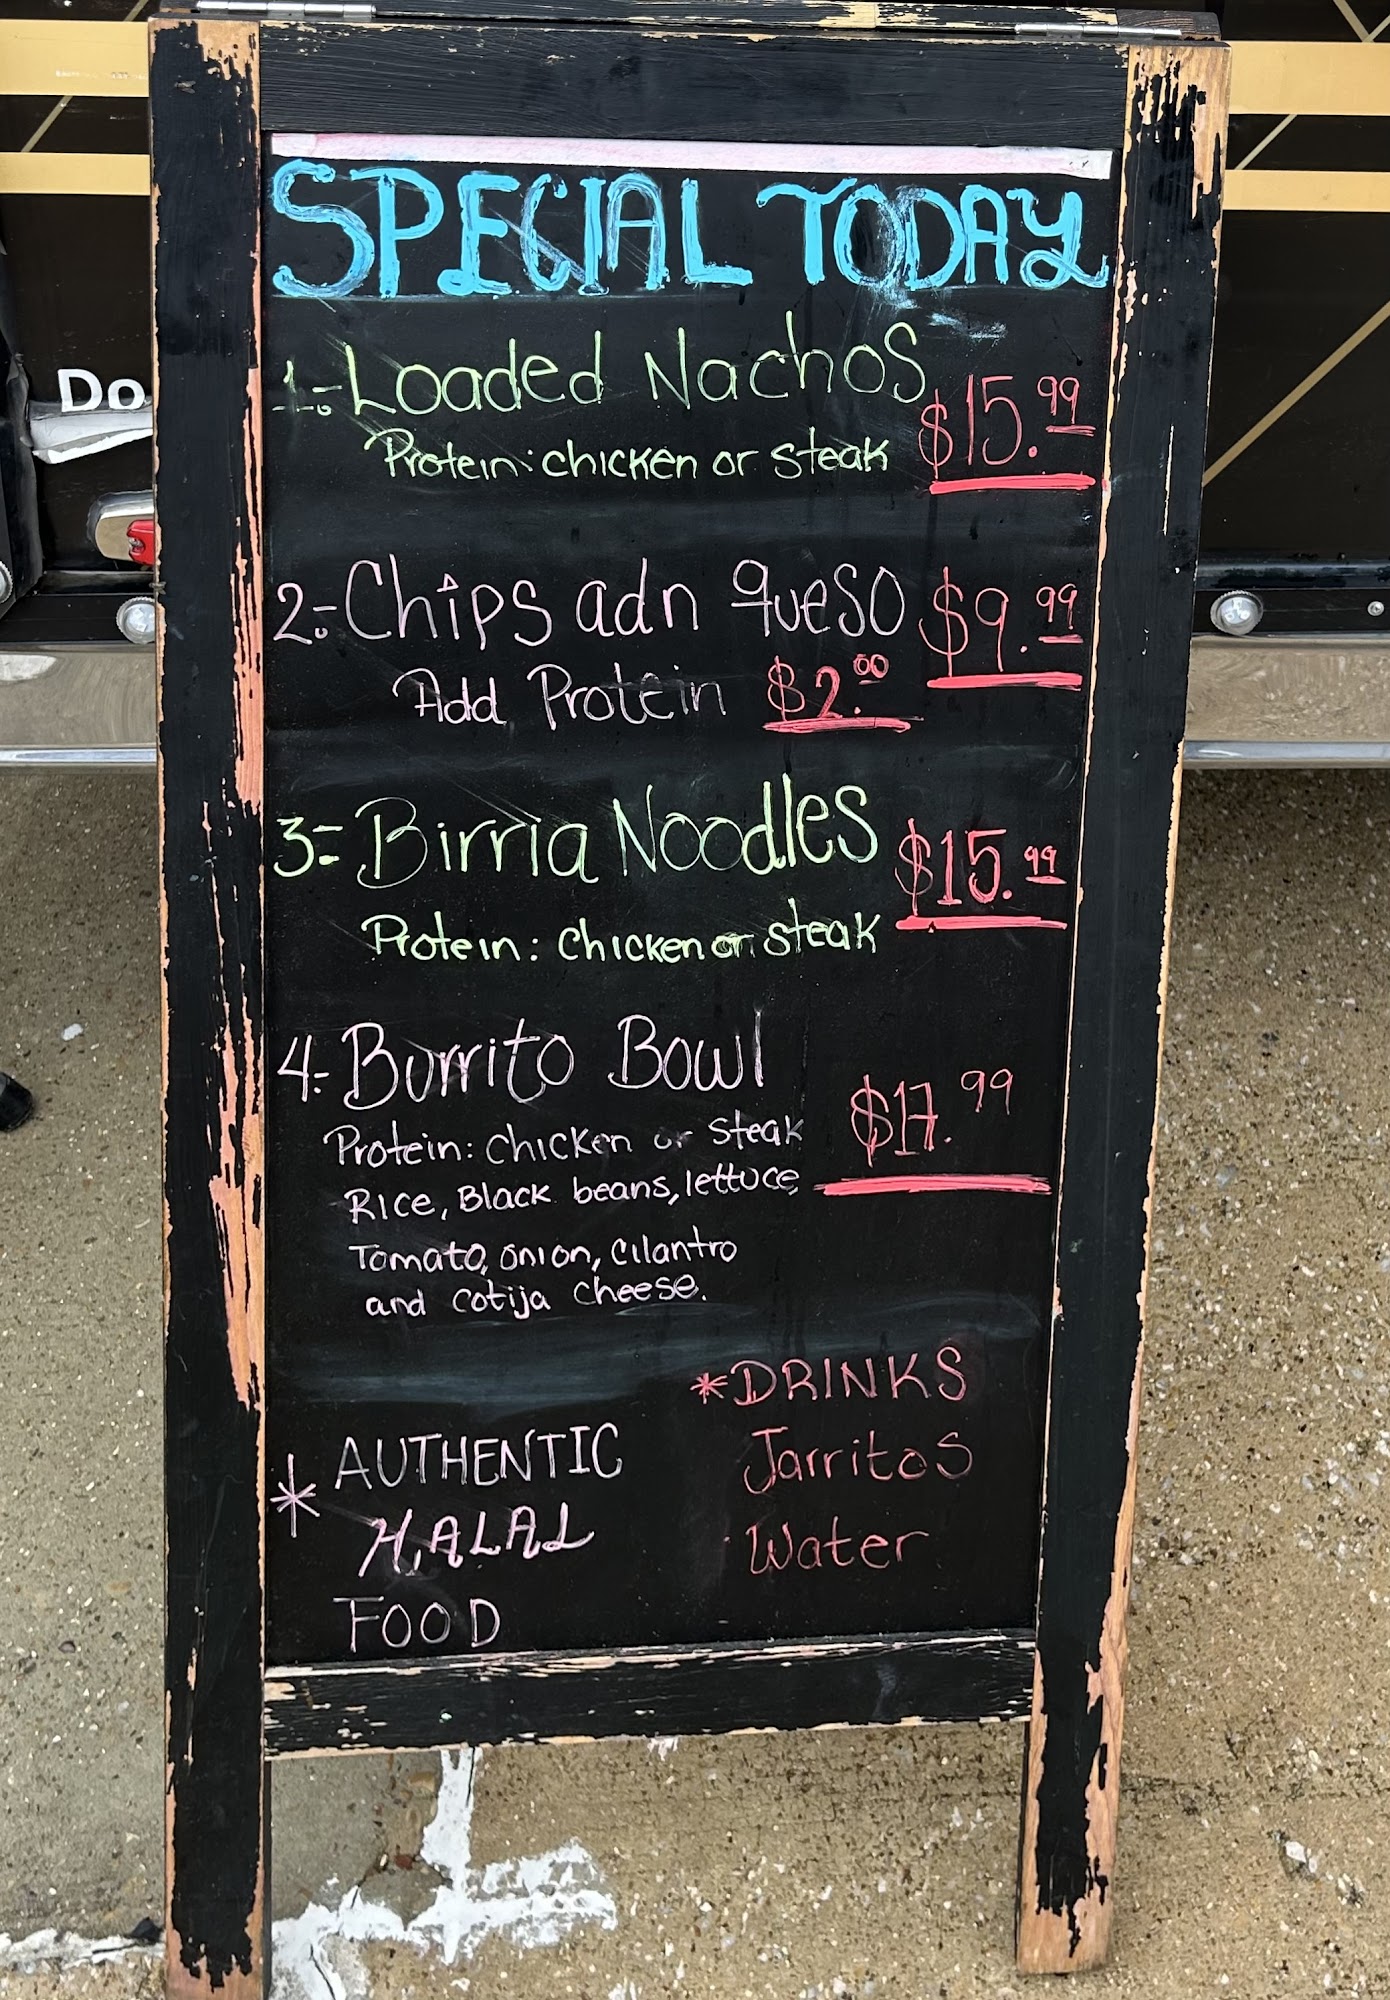 SPECIAL TODAY
1.- Loaded Nachos $15.99
Protein: chicken or steak
2.- Chips adn queso $9.99
Add Protein $2.00
3.- Birria Noodles $15.99
Protein: chicken or steak
4.- Burrito Bowl $17.99
Protein: chicken or steak
Rice, Black beans, lettuce,
Tomato, onion, cilantro
and cotija cheese.
* AUTHENTIC
HALAL
FOOD
*DRINKS
Jarritos
Water
Do